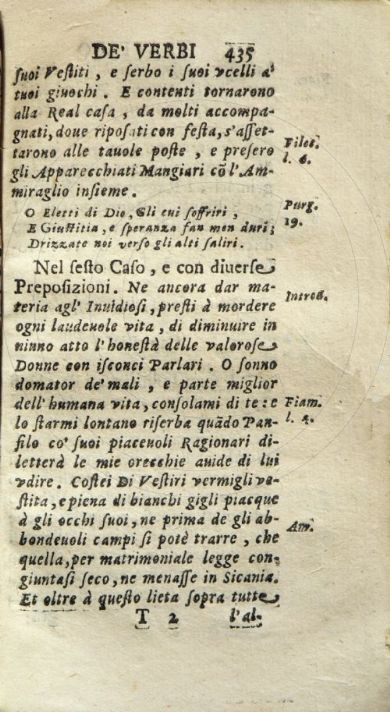 DE' VERBI 435
suoi Vestiti, e serbo i suoi vcelli a'
tuoi giuochi. E contenti tornarono
alla Real casa, da molti accompa-
gnati, doue riposati con festa, s'asset-
tarono alle tauole poste, e presero
gli Apparecchiati Mangiari cō l'Am-
miraglio insieme.
Filoc.
l. 6.
O Eletti di Dio, Gli cui soffriri,
E Giustitia, e speranza fan men duri;
Drizzate noi verso gli alti saliri.
Purg.
19.
Nel sesto Caso, e con diuerse
Preposizioni. Ne ancora dar ma-
teria agl' Inuidiosi, presti à mordere
ogni laudeuole vita, di diminuire in
niuno atto l'honestà delle valorose
Donne con isconci Parlari. O sonno
domator de' mali, e parte miglior
dell'humana vita, consolami di te: e
lo starmi lontano riserba quādo Pan-
filo co' suoi piaceuoli Ragionari di-
letterà le mie orecchie auide di lui
vdire. Costei Di Vestiri vermigli ve-
stita, e piena di bianchi gigli piacque
à gli occhi suoi, ne prima de gli ab-
bondeuoli campi si potè trarre, che
quella, per matrimoniale legge con-
giuntasi seco, ne menasse in Sicania.
Et oltre à questo lieta sopra tutte
Introd.
Fiam.
l. 5.
Am.
T 2 l'al-